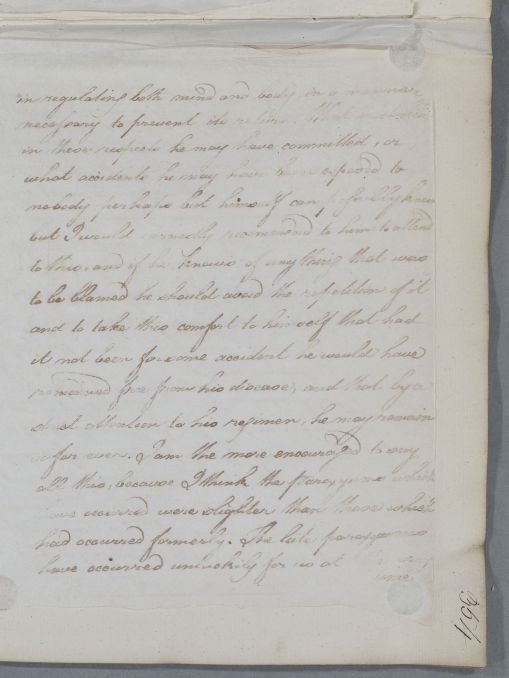 in regulating both mind and body, in a manner
necessary to prevent its return. What
in these respects he may have committed, or
what accidents he may have been exposed to
nobody perhaps but himself can possibly know
but I would earnestly recommend to him to attend
to this, and if he knows of any thing that were
to be blamed he should avoid the repetition of it
and to take this comfort to himself that had
it not been for some accident he would have
remained free from his disease, and that by a
strict attention to his regimen, he may remain
so for ever. I am the more encouraged to say
all this, because I think the paroxysms which
have occurred were slighter than those which
had occurred formerly. The late paroxysms
have occurred unluckily for us at a very
time